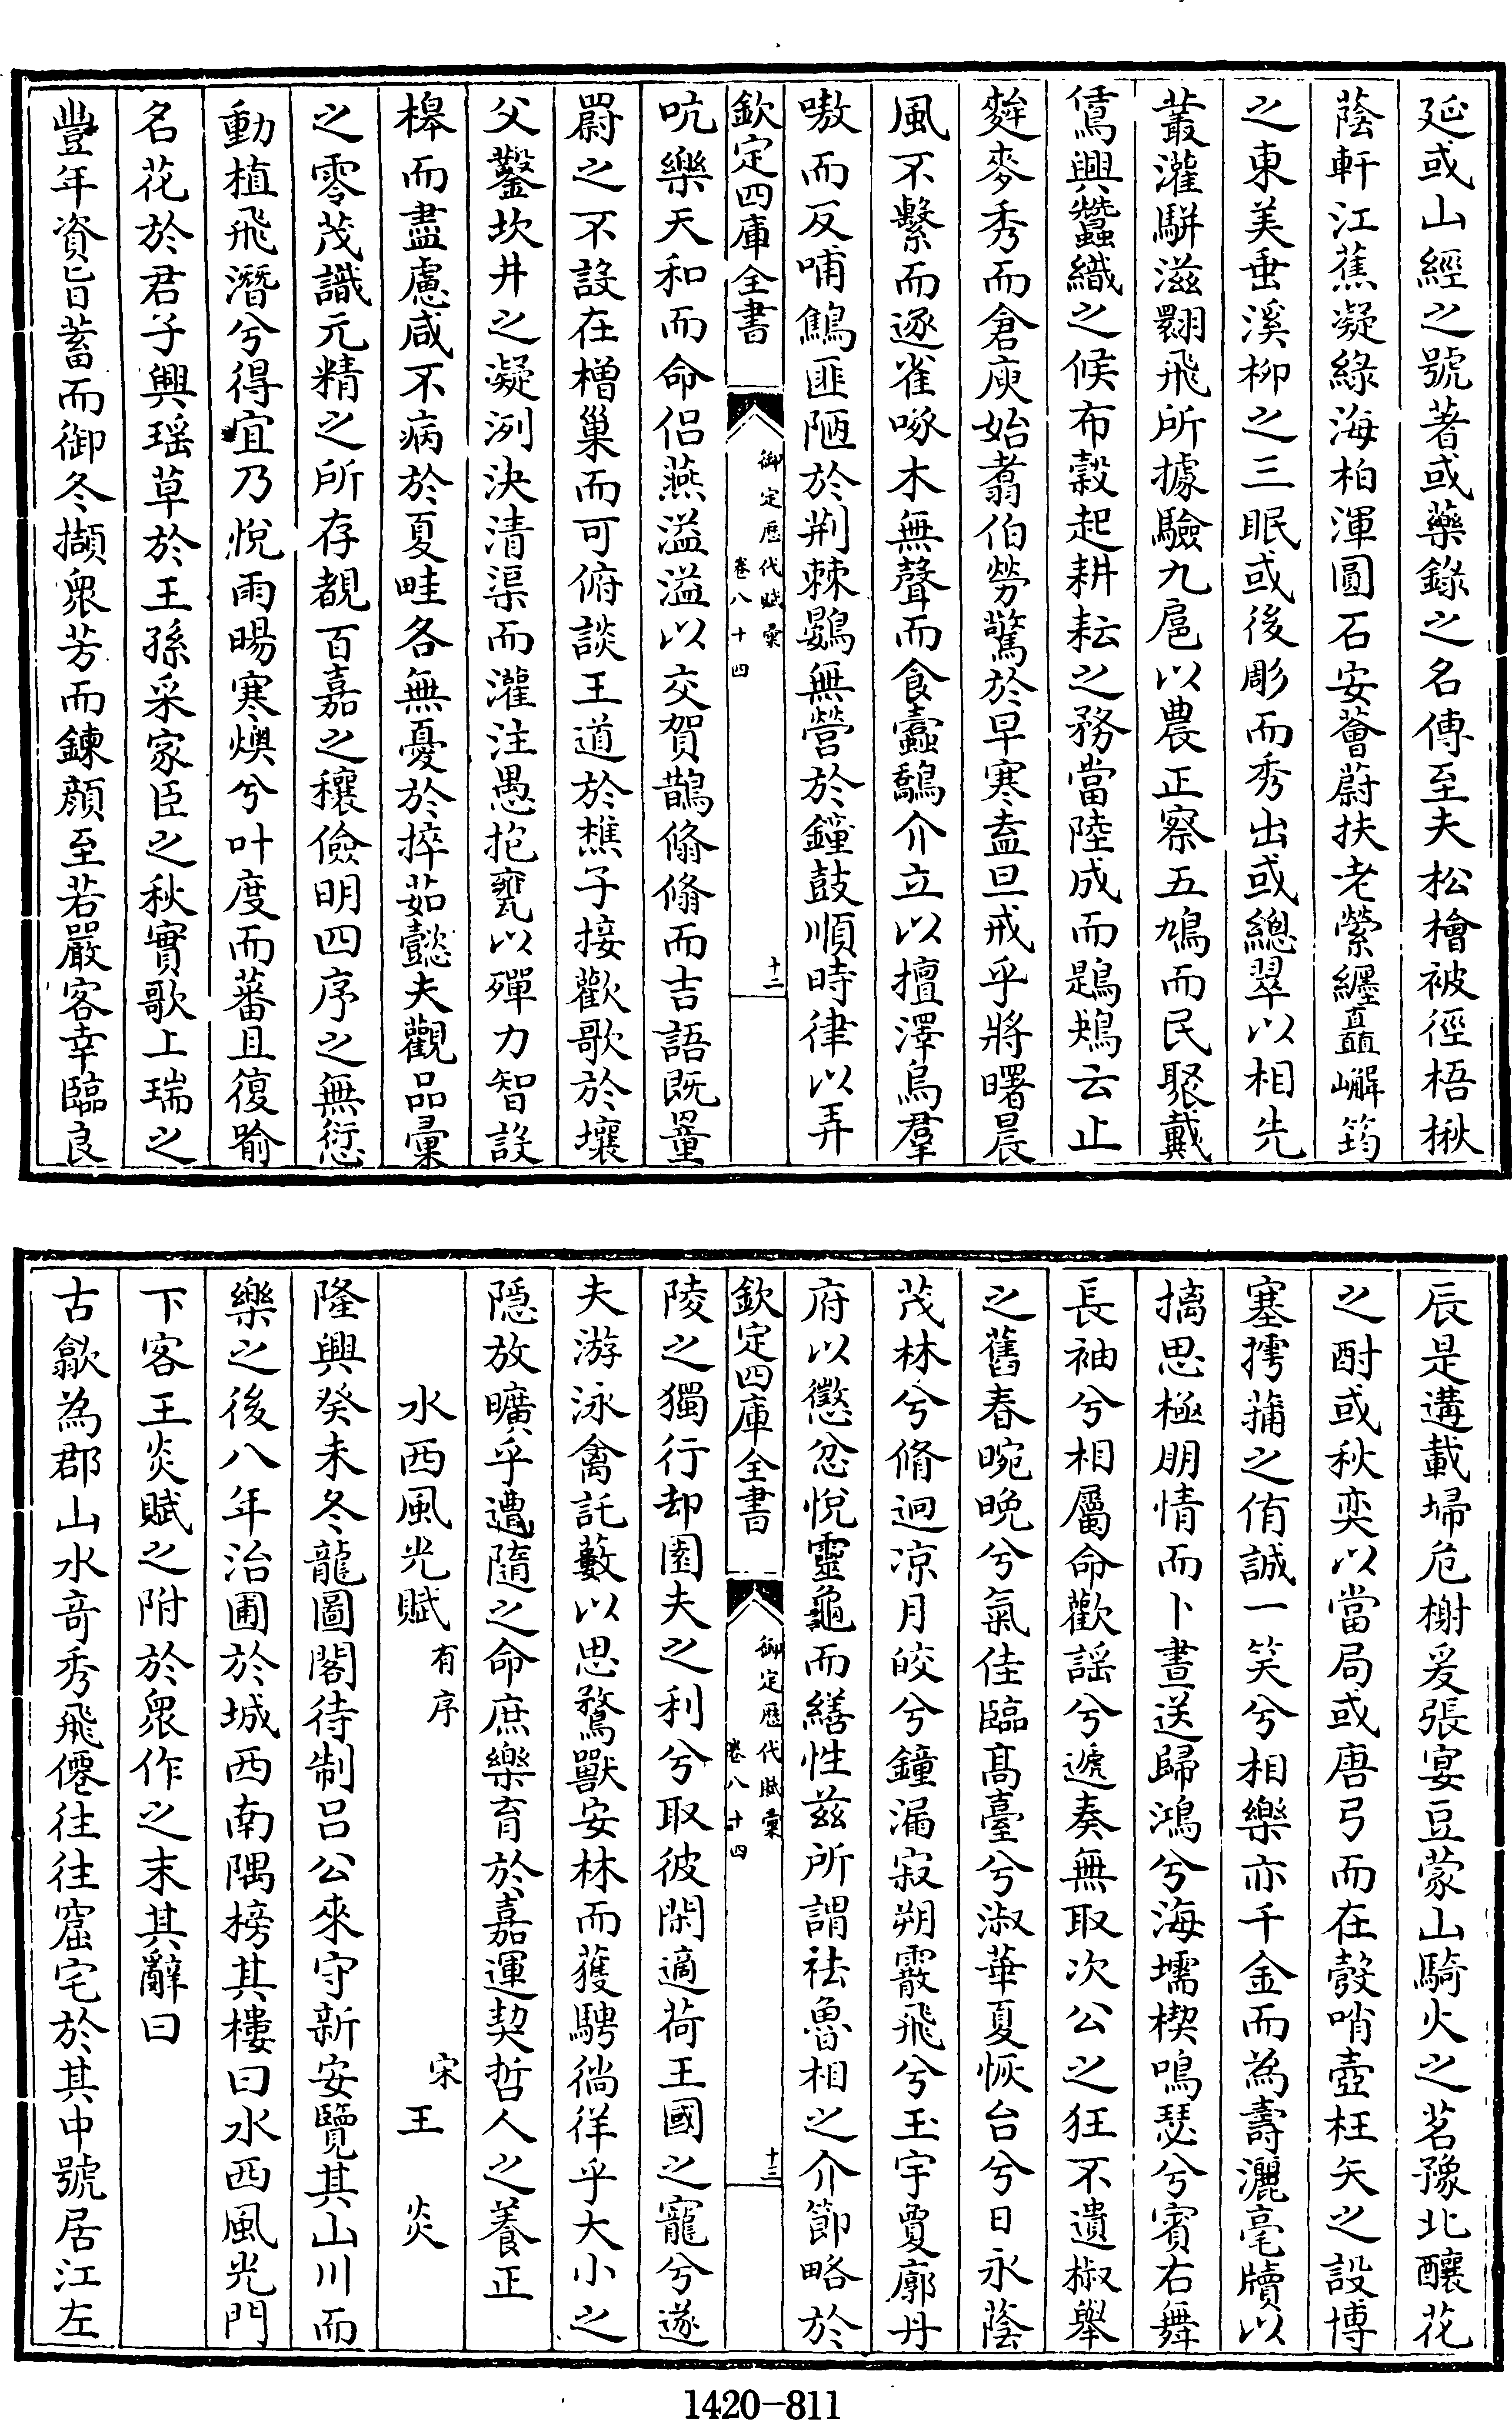 延或山經之號著或藥錄之名傳至夫松檜被徑梧楸
蔭軒江蕉凝綠海柏渾圓石安薈蔚扶老縈纒矗巁筠
之東美垂溪柳之三眠或後彫而秀出或總翠以相先
叢灌駢滋翾飛所據驗九扈以農正察五鳩而民聚戴
鵀興蠶織之候布穀起耕耘之務當陸成而鶗鴂云止
麰麥秀而倉庾始翥伯勞驚於早寒盍旦戒乎將曙晨
風不繫而逐雀啄木無聲而食蠹鷸介立以擅澤烏羣
嗷而反哺鷦匪陋於荆棘鷃無營於鐘鼓順時律以弄
欽定四庫全書
御定歷代賦彙
卷八十四
十二
吭樂天和而命侣燕溢溢以交賀鵲翛翛而吉語既罿
罻之不設在橧巢而可俯談王道於樵子接歡歌於壤
父鑿坎井之凝冽決清渠而灌注愚抱甕以殫力智設
槔而盡慮咸不病於夏畦各無憂於捽茹懿夫觀品彙
之零茂識元精之所存覩百嘉之穰儉明四序之無愆
動植飛潛兮得宜乃悅雨暘寒燠兮叶度而蕃且復喻
名花於君子興瑶草於王孫采家臣之秋實歌上瑞之
豐年資旨蓄而御冬擷衆芳而鍊顔至若嚴客幸臨良
辰是遘載埽危榭爰張宴豆蒙山騎火之茗豫北釀花
之酎或秋奕以當局或唐弓而在彀哨壺枉矢之設博
塞摴蒱之侑誠一笑兮相樂亦千金而為壽灑毫牘以
摛思極朋情而卜晝送歸鴻兮海壖楔鳴瑟兮賓右舞
長袖兮相屬命歡謡兮遞奏無取次公之狂不遺椒舉
之舊春晼晚兮氣佳臨髙臺兮淑華夏恢台兮日永蔭
茂林兮脩迥凉月皎兮鐘漏寂朔霰飛兮玉宇敻廓丹
府以懲忿悅靈龜而繕性兹所謂祛魯相之介節略於
欽定四庫全書
御定歷代賦彙
卷八十四
十三
陵之獨行却園夫之利兮取彼閑適荷王國之寵兮遂
夫游泳禽託藪以思騖獸安林而獲騁徜徉乎大小之
隠放曠乎遭隨之命庶樂育於嘉運契哲人之養正
水西風光賦有序 宋王炎
隆興癸未冬龍圖閣待制吕公來守新安覽其山川而
樂之後八年治圃於城西南隅榜其樓曰水西風光門
下客王炎賦之附於衆作之末其辭曰
古歙為郡山水竒秀飛僊往往窟宅於其中號居江左
1420-811